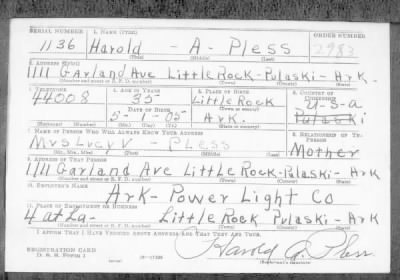 SERIAL NUMBER 1. NAME (Print) ORDER NUMBER
1136 Harold - A - Pless 2983
(First) (Middle) (Last)
2. ADDRESS (Print)
1111 Garland Ave Little Rock - Pulaski - Ark
(Number and street or R. F. D. number) (Town) (County) (State)
3. TELEPHONE 4. AGE IN YEARS 5. PLACE OF BIRTH 6. COUNTRY OF CITIZENSHIP
44008 35 - Little Rock U-S-a
DATE OF BIRTH (Town or county) Pulaski
5 - 05 Ark.
(Exchange) (Number) (Mo.) (Day) (Yr.) (State or country)
7. NAME OF PERSON WHO WILL ALWAYS KNOW YOUR ADDRESS 8. RELATIONSHIP OF THAT PERSON
Mrs Lucy V - Pless Mother
(Mr., Mrs., Miss) (First) (Middle) (Last)
9. ADDRESS OF THAT PERSON
1111 Garland Ave Little Rock - Pulaski - Ark
(Number and street or R. F. D. number) (Town) (County) (State)
10. EMPLOYER'S NAME
Ark - Power Light Co
11. PLACE OF EMPLOYMENT OR BUSINESS
4 at La - Little Rock Pulaski - Ark
(Number and street or R. F. D. number) (Town) (County) (State)
I AFFIRM THAT I HAVE VERIFIED ABOVE ANSWERS AND THAT THEY ARE TRUE.
REGISTRATION CARD
D. S. S. Form 1
Harold A. Pless
(Registrant's signature)